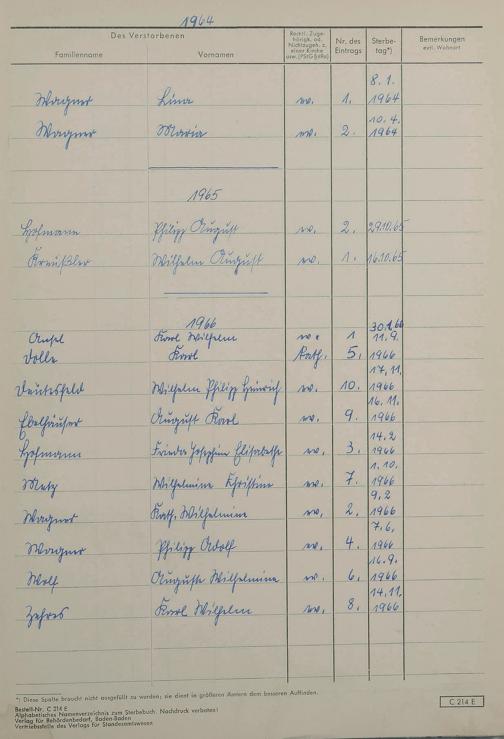 1964
Des Verstorbenen
Familienname Vornamen Rechtl. Zuge-hörigk. od. Nichtzugeh. z. einer Kirche usw. (PStG §37a) Nr. des Eintrags Sterbe-tag*) Bemerkungen evtl. Wohnort
Wagner Lina ev. 1. 8.1. 1964
Wagner Maria ev. 2. 10.4. 1964
1965
Hofmann Philipp August ev. 2. 29.10.65
Kreußler Wilhelm August ev. 1. 16.10.65
1966
Karl Wilhelm ev. 1 30.1.66
Dolle Karl Kath. 5. 11.9. 1966
Wilhelm Philipp Heinrich ev. 10. 17.11. 1966
Ebelhäuser August Karl ev. 9. 16.11. 1966
Hofmann Frieda Josephine Elisabethe ev. 3. 14.2 1966
Metz Wilhelmine Christine ev. 7. 1.10. 1966
Wagner Kath. Wilhelmine ev. 2. 9.2 1966
Wagner Philipp Adolf ev. 4. 7.6. 1966
Wolf Auguste Wilhelmine ev. 6. 16.9. 1966
Zehres Karl Wilhelm ev. 8. 14.11. 1966
*) Diese Spalte braucht nicht ausgefüllt zu werden; sie dient in größeren Ämtern dem besseren Auffinden.
Bestell-Nr. C 214 E
Alphabetisches Namenverzeichnis zum Sterbebuch. Nachdruck verboten!
Verlag für Behördenbedarf, Baden-Baden
Vertriebsstelle des Verlags für Standesamtswesen
C 214 E